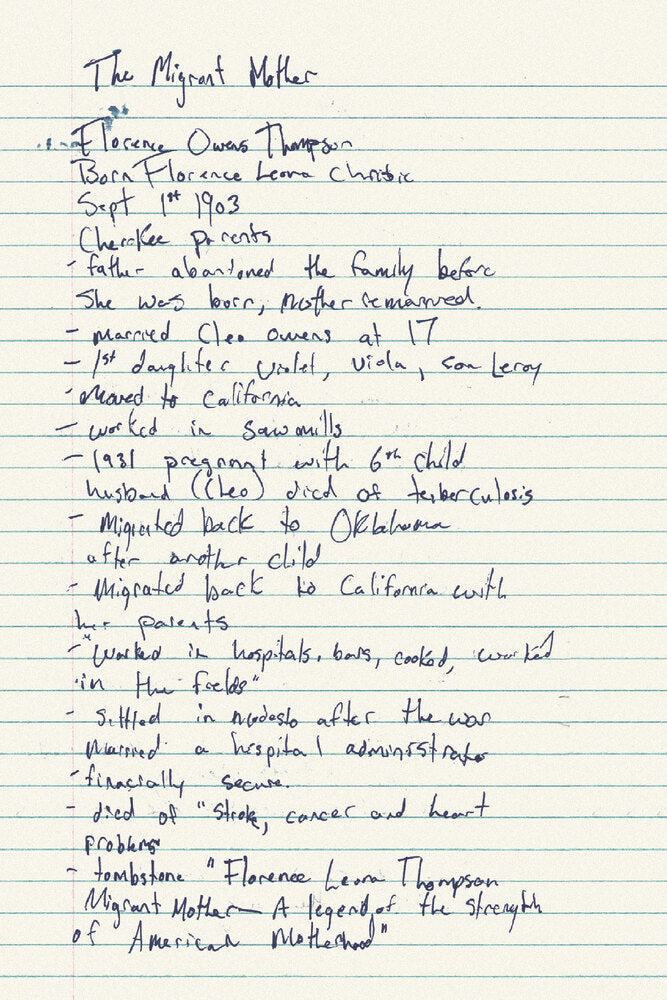 The Migrant Mother
Florence Owens Thompson
Born Florence Leona Christie
Sept 1st 1903
Cherokee parents
- father abandoned the family before
she was born, Mother remarried.
- married Cleo Owens at 17
- 1st daughter Violet, Viola, son Leroy
- Moved to California
- worked in sawmills
- 1931 pregnant with 6th child
husband (Cleo) died of terberculosis
- Migrated back to Oklahoma
after another child
- Migrated back to California with
her parents
- "worked in hospitals, bars, cooked, worked
in the fields"
- Settled in modesto after the war
Married a hospital administrator
- finacially secure.
- died of "stroke, cancer and heart
problems"
- tombstone "Florence Leona Thompson
Migrant Mother - A legend of the strength
of American Motherhood"